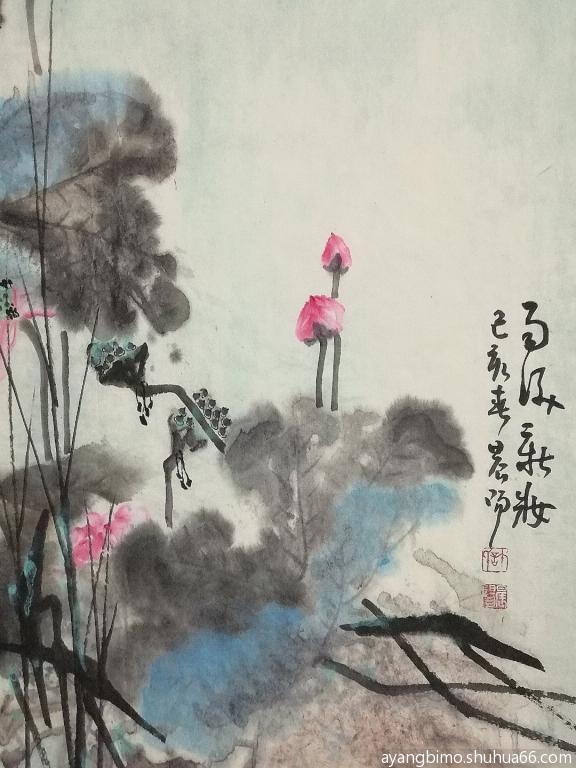 雨后新妆
己亥春晨阳
ayangbimo.shuhua66.com